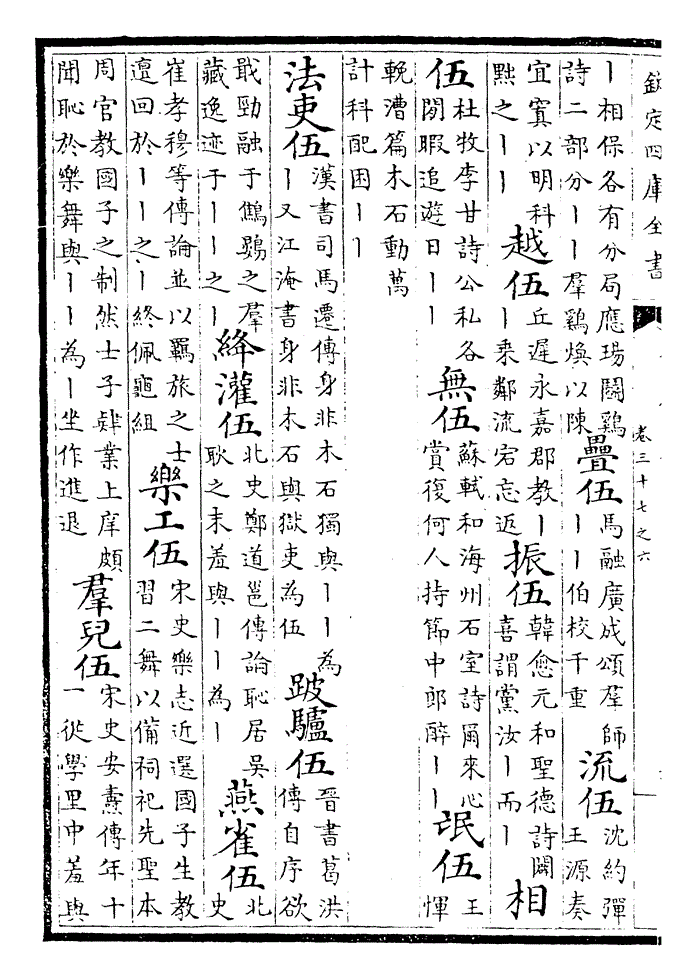 欽定四庫全書
卷三十七之六
丨相保各有分局應瑒鬪鷄
詩二部分丨丨羣鷄煥以陳
疊伍
馬融廣成頌羣師
丨丨伯校千重
流伍
沈約彈
王源奏
宜寘以明科
黜之丨丨
越伍
丘遲永嘉郡教丨
丨乘鄰流宕忘返
振伍
韓愈元和聖德詩闕
喜謂黨汝丨而丨
相
伍
杜牧李甘詩公私各
閒暇追遊日丨丨
無伍
蘇軾和海州石室詩爾來心
賞復何人持節中郎醉丨丨
氓伍
王
惲
輓漕篇木石動萬
計科配困丨丨
法吏伍
漢書司馬遷傳身非木石獨與丨丨為
丨又江淹書身非木石與獄吏為伍
跛驢伍
晉書葛洪
傳自序欲
戢勁融于鷦鷃之羣
藏逸迹于丨丨之丨
絳灌伍
北史鄭道邕傳論恥居吳
耿之末羞與丨丨為丨
燕雀伍
北
史
崔孝穆等傳論並以羈旅之士
邅回於丨丨之丨終佩龜組
樂工伍
宋史樂志近選國子生教
習二舞以備祠祀先聖本
周官教國子之制然士子肄業上庠頗
聞恥於樂舞與丨丨為丨坐作進退
羣兒伍
宋史安燾傳年十
一從學里中羞與